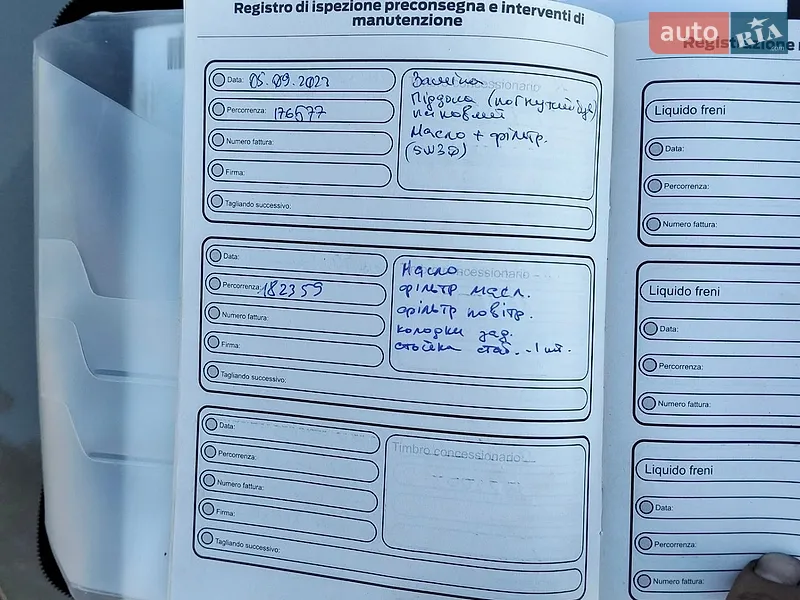 Registro di ispezione preconsegna e interventi di
manutenzione
Data: 05.09.202
Percorrenza: 176577
Numero fattura:
Firma:
Tagliando successivo:
Заміна
Піддона (погнутий був)
на новий
Масло + фільтр.
(5W30)
Data:
Percorrenza: 182359
Numero fattura:
Firma:
Tagliando successivo:
Масло concessionario
фільтр масл.
фільтр повітр.
колодки зад.
стойка стаб. - 1 шт.
Data:
Percorrenza:
Numero fattura:
Firma:
Tagliando successivo:
Timbro concessionario
auto RIA .com
Registrazione
Liquido freni
Data:
Percorrenza:
Numero fattura:
Liquido freni
Data:
Percorrenza:
Numero fattura:
Liquido freni
Data:
Percorrenza:
Numero fattura: